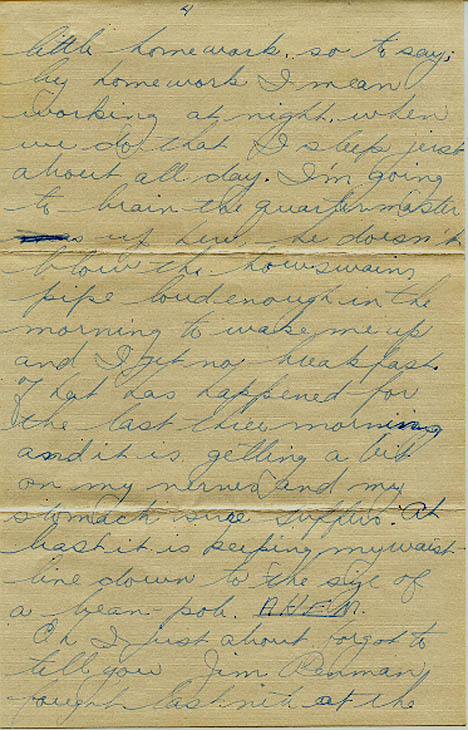 4
little homework, so to say,
by homework I mean
working at night, when
we do that I sleep just
about all day. I'm going
to brain the quartermaster
up here, he doesn't
blow the
pipe loud enough in the
morning to wake me up
and I get no breakfast.
That has happened for
the last three morning
and it is getting a bit
on my nerves and my
stomach sure suffers. At
least it is keeping my waist-
line down to the size of
a bean-pole. AHEM.
Oh I just about forgot to
tell you Jim
fought last nite at the